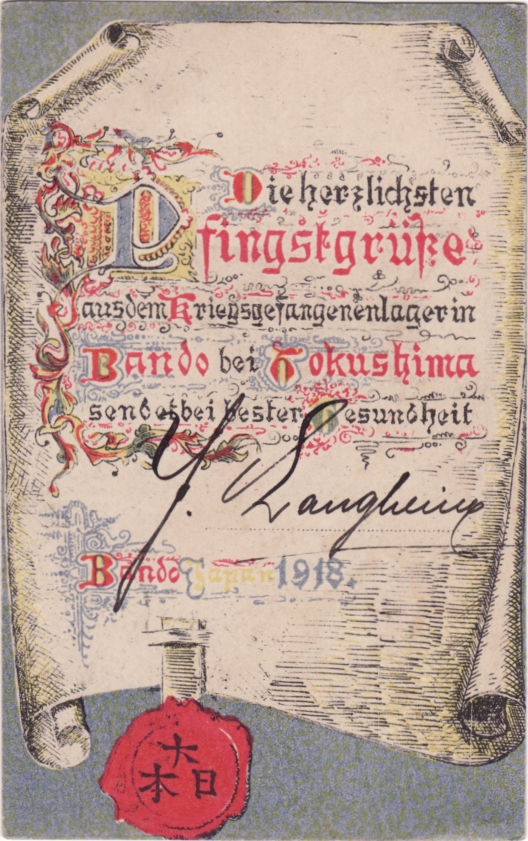 Die herzlichsten
Pfingstgrüße
aus dem Kriegsgefangenenlager in
Bando bei Tokushima
sendet bei bester Gesundheit
J. Langhein
Bando Japan 1918.
大日本